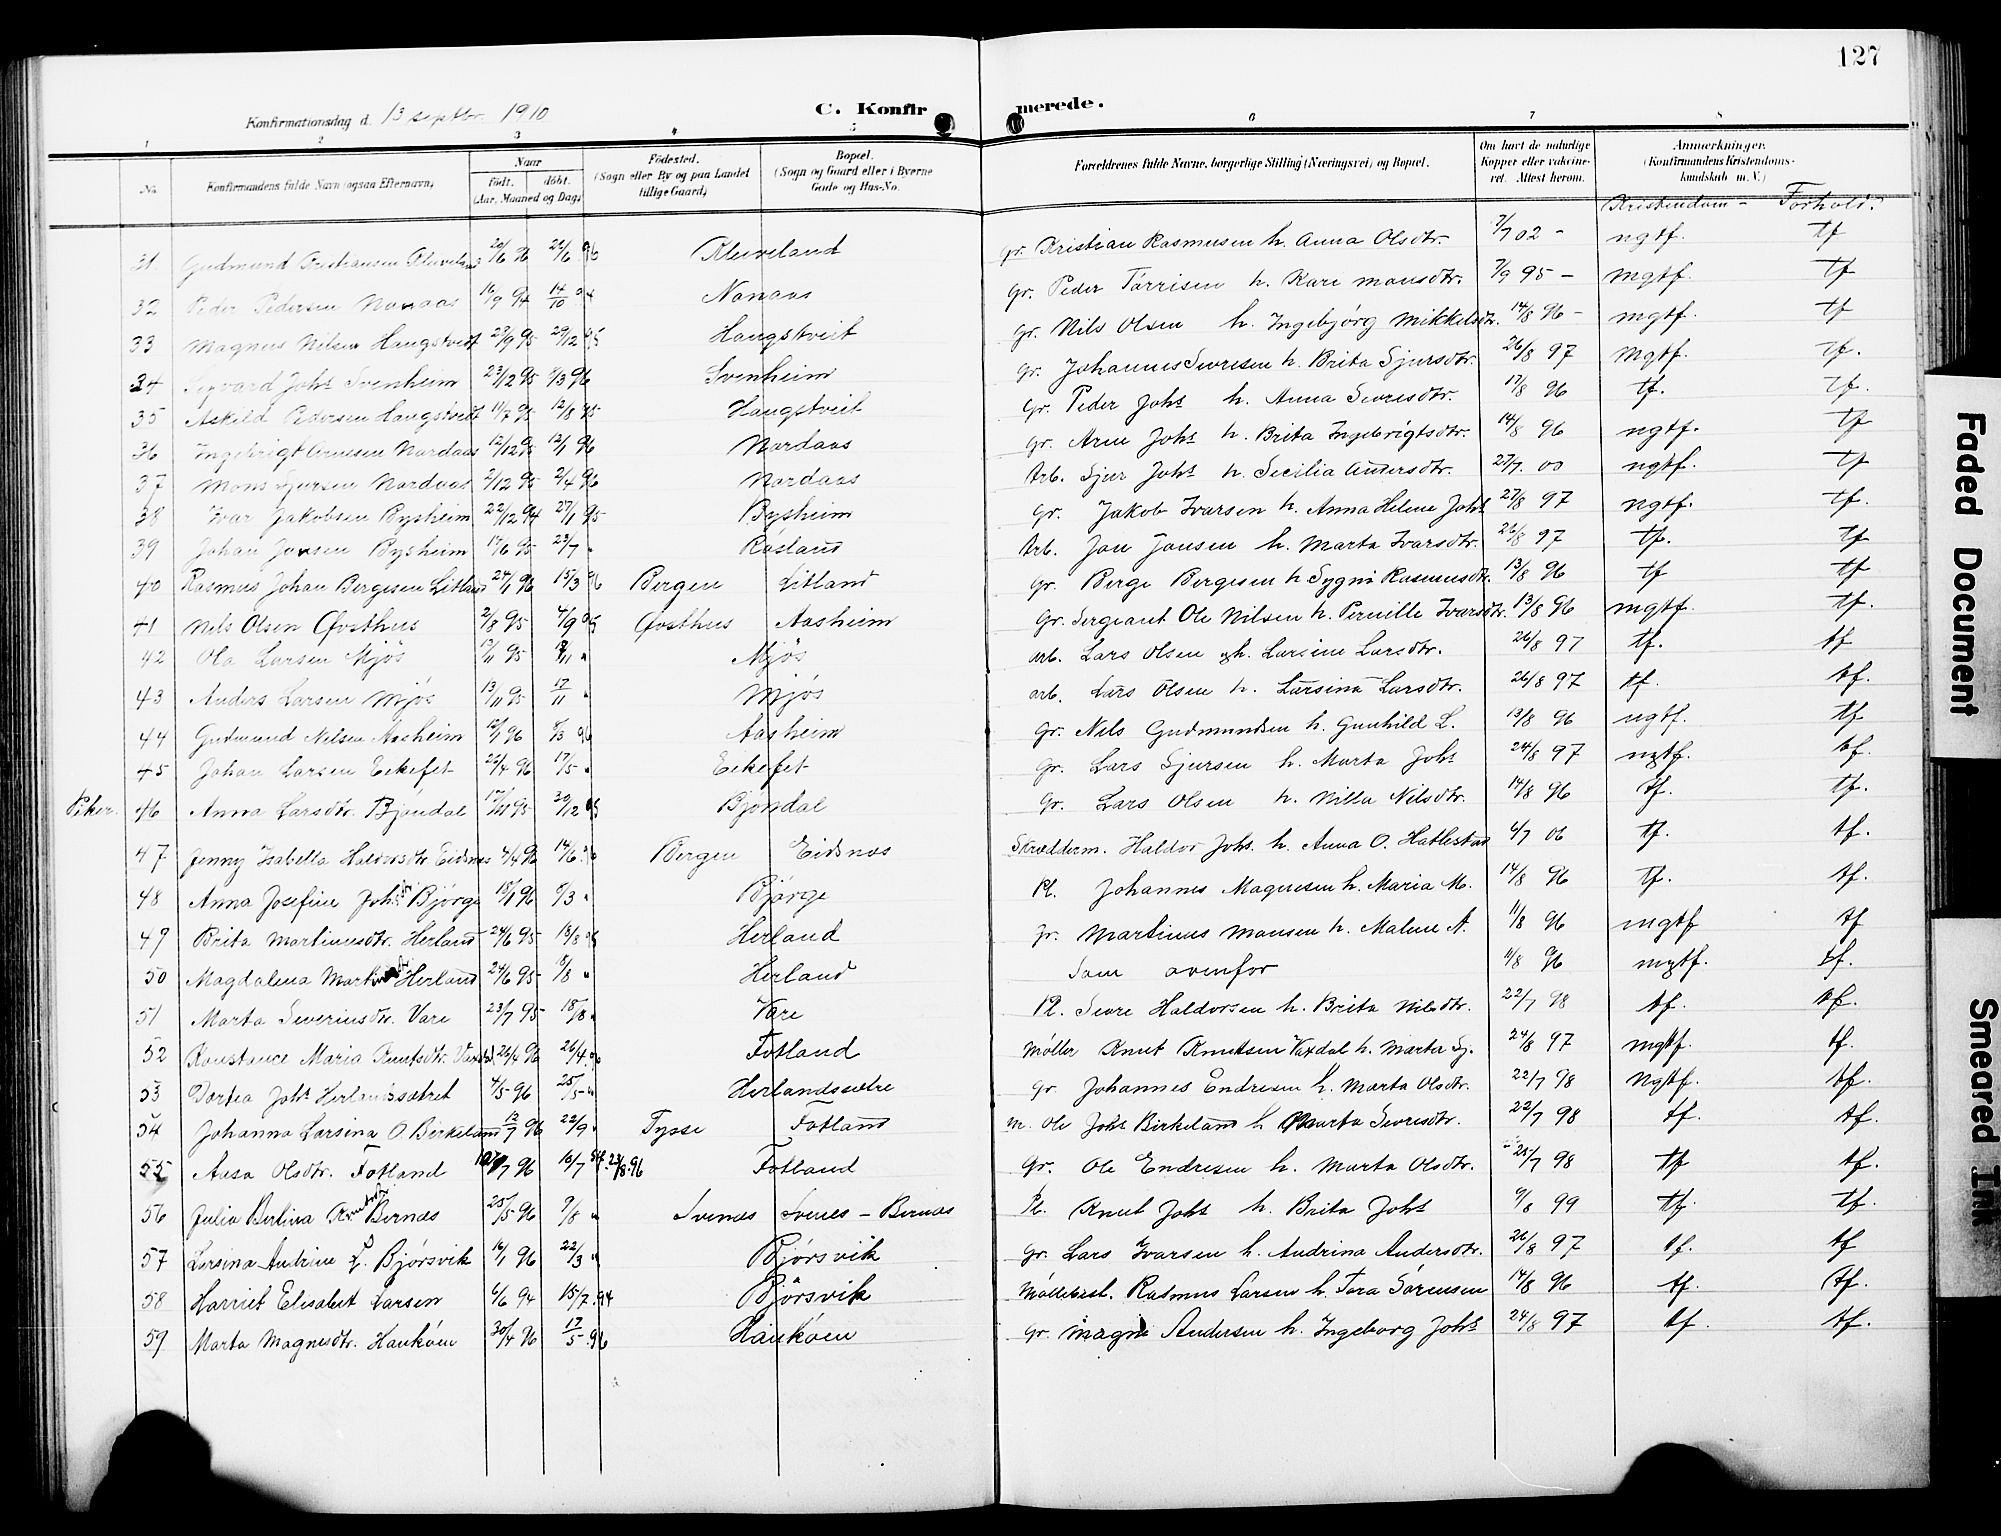 127
Konfirmationsdag d. 13 septbr. 1910
C. Konfirmerede.
1 2 3 4 5 6 7 8
No.
Konfirmandens fulde Navn (ogsaa Efternavn)
Naar
født. døbt.
(Aar, Maaned og Dag)
Fødested.
(Sogn eller By og paa Landet
tillige Gaard)
Bopæl.
(Sogn og Gaard eller i Byerne
Gade og Hus-No.
Forældrenes fulde Navne, borgerlige Stilling (Næringsvei) og Bopæl.
Om havt de naturlige
Kopper eller vaccine-
ret. Attest herom.
Anmærkninger.
(Konfirmandens Kristendoms-
kundskab m. V.)
Kristendom - Forhold.
31 Gudmund Kristiansen Kleiveland 20/6 96 22/6 96 Kleiveland gr. Kristian Rasmusen h. Anna Olsdtr. 7/7 02 - ngtf. tf
32 Peder Pedersen Nonaas 16/9 94 14/10 94 Nonaas gr. Peder Torrisen h. Kari Monsdtr. 7/9 95 - mgtf. tf
33 Magnus Nilsen Haugstveit 23/9 95 29/12 95 Haugstveit gr. Nils Olsen h. Ingebjørg Mikkelsdtr. 14/8 96 - mgtf. tf
34 Sigvard Johs Svenheim 23/12 95 8/3 96 Svenheim gr. Johannes Sivresen h. Brita Sjursdtr. 26/8 97 mgtf. tf.
35 Askild Pedersen Haugstveit 11/7 95 12/8 95 Haugstveit gr. Peder Johs h. Anna Sivresdtr. 17/8 96 tf. tf.
36 Ingebrigt Arnesen Nordaas 12/12 95 12/1 96 Nordaas gr. Arne Johs h. Brita Ingebrigtsdtr. 14/8 96 ngtf. tf
37 Mons Sjursen Nordaas 2/12 95 2/4 96 Nordaas Arb. Sjur Johs h. Secilia Andersdtr. 27/7 00 ngtf. tf
38 Ivar Jakobsen Bysheim 22/12 94 27/1 95 Bysheim gr. Jakob Ivarsen h. Anna Helene Johs 27/8 97 ngtf. tf.
39 Johan Jonsen Bysheim 17/6 95 23/7 " Rasland Arb. Jon Jonsen h. Marta Ivarsdtr. 26/8 97 tf. tf
40 Rasmus Johan Bergesen Litland 24/1 96 15/3 96 Bergen Litland gr. Berge Bergesen h. Sygni Rasmusdtr. 13/8 96 tf tf
41 Nils Olsen Øvsthus 2/8 95 4/9 95 Øvsthus Aasheim Gr. Sergeant Ole Nilsen h. Pernille Ivarsdtr. 13/8 96 mgtf. tf.
42 Ola Larsen Mjøs 13/11 95 17/11 " Mjøs arb. Lars Olsen h. Larsine Larsdtr. 26/8 97 tf. tf
43 Anders Larsen Mjøs 13/11 95 17/11 " Mjøs arb. Lars Olsen h. Larsina Larsdtr. 26/8 97 tf. tf.
44 Gudmund Nilsen Aasheim 12/1 96 8/3 96 Aasheim gr. Nils Gudmundsen h. Gunhild L. 13/8 96 ngtf. tf
45 Johan Larsen Eikefet 22/4 96 17/5 " Eikefet gr. Lars Sjursen h. Marta Johs 24/8 97 mgtf. tf.
Piker. 46 Anna Larsdtr. Bjøndal 17/11 95 30/12 95 Bjøndal gr. Lars Olsen h. Nilla Nilsdtr. 14/8 96 tf. tf.
47 Jenny Isabella Haldorsdtr Eidsnes 4/4 96 14/6 96 Bergen Eidsnes Skræderm. Haldor Johs. h. Anna O. Hatlestad 6/7 06 tf. tf.
48 Anna Josefine Johs Bjørge 15/1 96 8/3 " Bjørge Pl. Johannes Magnesen h. Maria M. 14/8 96 tf. tf.
49 Brita Martinusdtr. Herland 24/6 95 18/8 95 Herland gr. Martinus Monsen h. Malene A. 11/8 96 mgtf tf
50 Magdalena Martinusdtr Herland 24/6 95 8/8 " Herland Som ovenfor 11/8 96 mgtf. tf.
51 Marta Severinsdtr. Vare 23/7 95 18/8 " Vare Pl. Sivre Haldorsen h. Brita Nilsdtr. 22/7 98 tf. tf.
52 Konstance Maria Knutsdtr. Vaxdal 26/4 96 26/4 96 Fotland Møller Knut Knutsen Vaxdal h. Marta Sj. 24/8 97 mgtf. tf.
53 Dortea Johs Herlandssætret 4/5 96 25/5 " Herlandssætre gr. Johannes Endresen h. Marta Olsdtr. 22/7 98 ngtf. tf.
54 Johanna Larsina O. Birkeland 12/7 96 22/9 " Tysse Fotland m. Ole Johs Birkeland h. Marta Sivresdtr. 22/7 98 tf. tf.
55 Aasa Olsdtr. Fotland 10/7 96 10/7 st. 23/8 96 Fotland gr. Ole Endresen h. Marta Olsdtr. 25/7 98 tf tf.
56 Julia Bertina Knutsdtr Bernes 25/5 96 9/8 " Svenes Svenes - Bernes Pl. Knut Johs h. Brita Johs 9/8 99 tf. tf.
57 Larsina Andrine L. Bjørsvik 16/1 96 22/3 " Bjørsvik gr. Lars Ivarsen h. Andrina Andersdtr. 26/8 97 tf. tf
58 Harriet Elisabet Larsen 6/6 94 15/7 94 Bjørsvik Møllebest. Rasmus Larsen h. Tora Sørensen 14/8 96 tf. tf.
59 Marta Magnesdtr. Haukøen 30/4 96 17/5 96 Haukøen gr. Magne Andersen h. Ingeborg Johs 24/8 97 tf. tf.
Faded Document
Smeared Ink